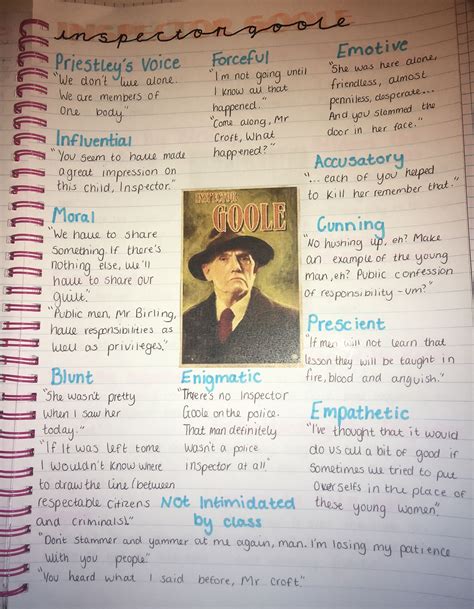 inspector goole
Priestley's Voice
"We don't live alone.
We are members of
One body."
Forceful
"I'm not going until
I know all that
happened."
"Come along, Mr
Croft, What
happened?"
Emotive
"She was here alone,
friendless, almost
penniless, desperate...
And you slammed the
door in her face."
Influential
"You seem to have made
a great impression on
this child, Inspector."
Accusatory
"... each of you helped
to kill her remember that."
Moral
"We have to share
Something. If there's
nothing else, we'll
have to share our
guilt."
"Public men, Mr Birling,
have responsibilities as
well as privileges."
INSPECTOR
GOOLE
Cunning
"No hushing up, eh? Make
an example of the young
man, eh? Public confession
of responsibility -um?"
Prescient
"If men will not learn that
lesson they will be taught in
fire, blood and anguish."
Blunt
"She wasn't pretty
When I saw her
today."
"If It was left tome
I wouldn't know where
to draw the line (between
respectable citizens
and criminals)."
Enigmatic
"There's no Inspector
Goole on the police.
That man definitely
Wasn't a police
inspector at all."
Empathetic
"I've thought that it would
do us all a bit of good if
Sometimes we tried to put
Ourselfs in the place of
these young women"
Not Intimidated
by class
"Don't stammer and yammer at me again, man. I'm losing my patience
With you people."
"You heard what I said before, Mr Croft."